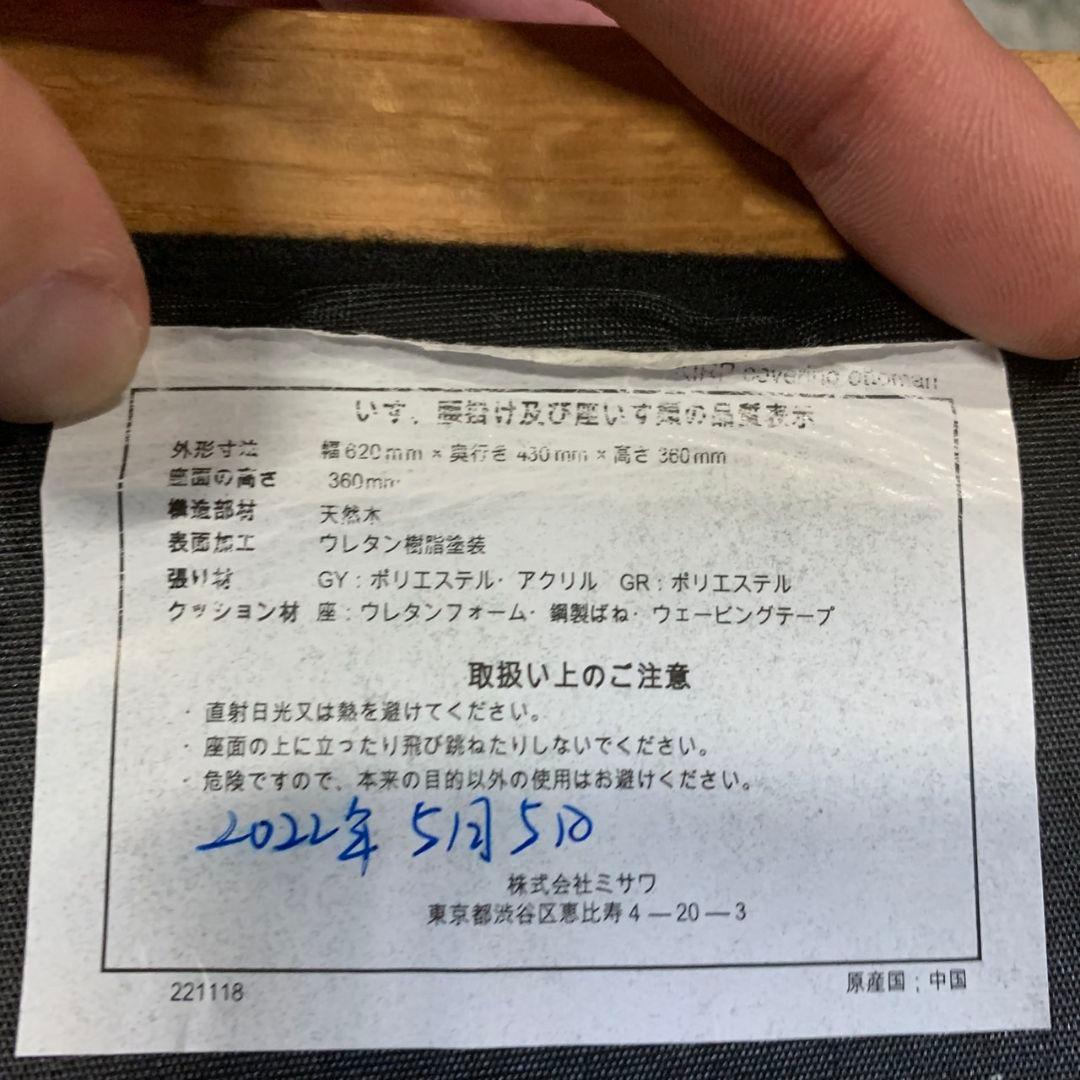 covering ottoman
いす、腰掛け及び座いす類の品質表示
外形寸法 幅620mm × 奥行き 430mm × 高さ 360mm
座面の高さ 360mm
構造部材 天然木
表面加工 ウレタン樹脂塗装
張り材 GY : ポリエステル・アクリル GR : ポリエステル
クッション材 座 : ウレタンフォーム・鋼製ばね・ウェービングテープ
取扱い上のご注意
・直射日光又は熱を避けてください。
・座面の上に立ったり飛び跳ねたりしないでください。
・危険ですので、本来の目的以外の使用はお避けください。
2022年 5月5日
株式会社ミサワ
東京都渋谷区恵比寿4―20―3
221118 原産国 ; 中国